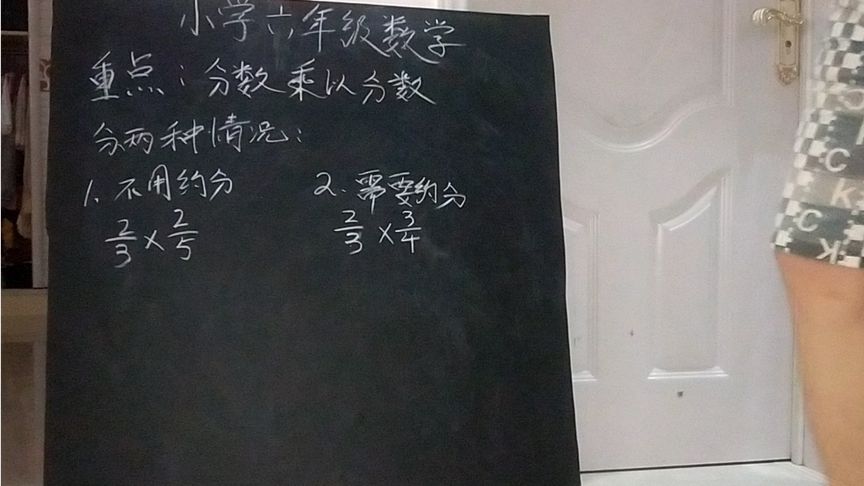 小学六年级数学
重点：分数乘以分数
分两种情况：
1、不用约分
2/3 × 2/5
2、需要约分
2/3 × 3/4
C
K
C
K